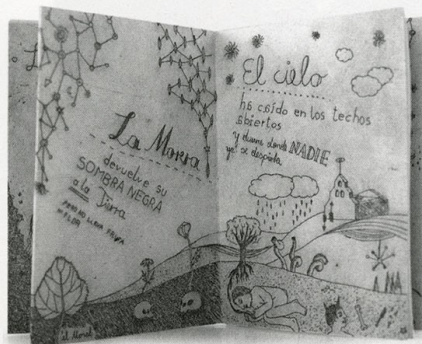 La Morra
devuelve su
SOMBRA NEGRA
a la
El cielo
ha caído en los techos
abiertos
y duerme donde NADIE
ya se despierta
el Moral